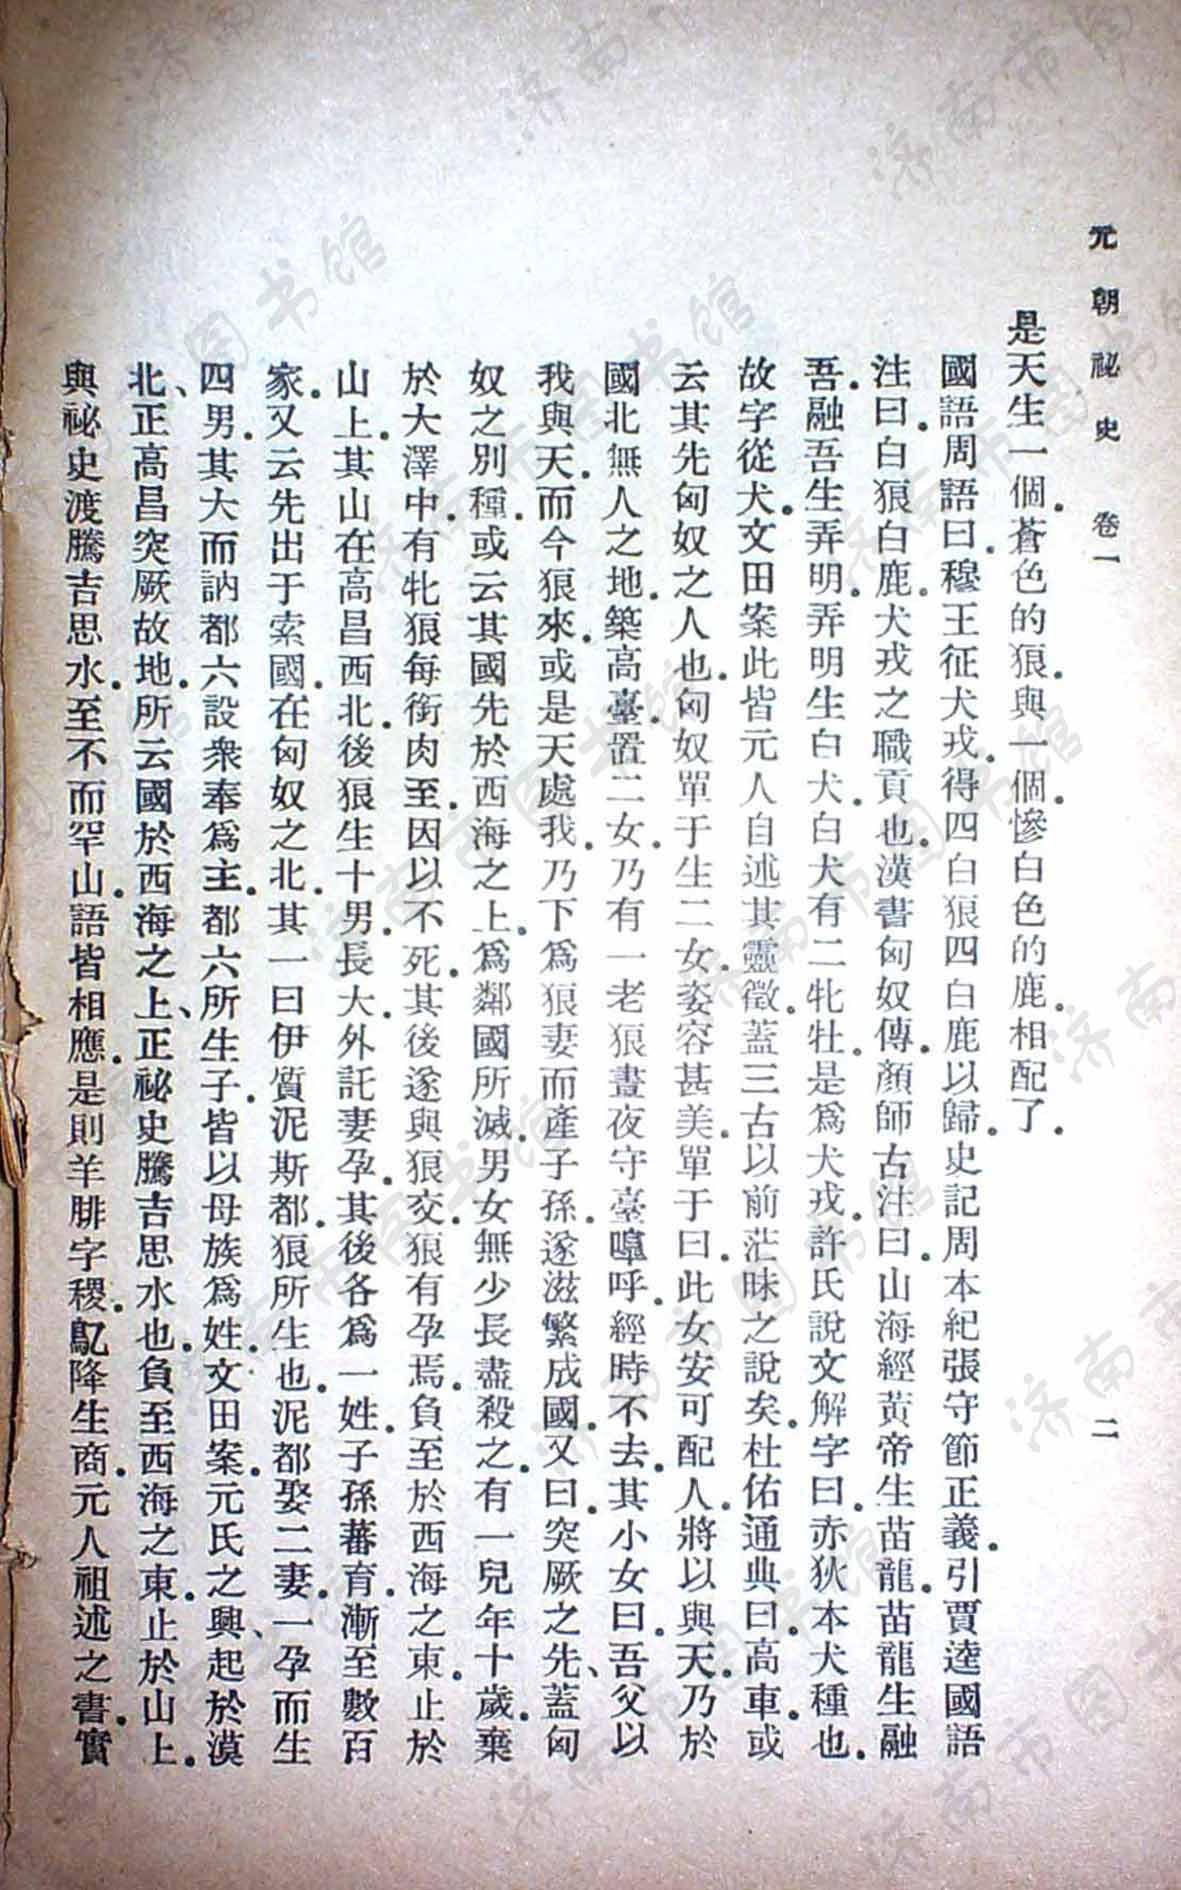 元朝祕史 卷一 二
是天生一個.蒼色的狼.與一個.慘白色的鹿.相配了.
國語周語曰.穆王征犬戎.得四白狼四白鹿以歸.史記周本紀張守節正義.引賈逵國語
注曰.白狼白鹿.犬戎之職貢也.漢書匈奴傳.顏師古注曰.山海經黃帝生苗龍.苗龍生融
吾.融吾生弄明.弄明生白犬.白犬有二牝牡.是爲犬戎.許氏說文解字曰.赤狄本犬種也.
故字從犬.文田案此皆元人自述其靈徵.蓋三古以前茫昧之說矣.杜佑通典曰.高車.或
云其先匈奴之人也.匈奴單于生二女.姿容甚美.單于曰.此女安可配人.將以與天.乃於
國北無人之地.築高臺.置二女.乃有一老狼晝夜守臺嘷呼.經時不去.其小女曰.吾父以
我與天.而今狼來.或是天處我.乃下爲狼妻而產子孫.遂滋繁成國.又曰.突厥之先、蓋匈
奴之別種.或云其國先於西海之上.爲鄰國所滅.男女無少長盡殺之.有一兒年十歲.棄
於大澤中.有牝狼每銜肉至.因以不死.其後遂與狼交.狼有孕焉.負至於西海之東.止於
山上.其山在高昌西北.後狼生十男.長大.外託妻孕.其後各爲一姓.子孫蕃育.漸至數百
家.又云先出于索國.在匈奴之北.其一曰伊質泥斯都.狼所生也.泥都娶二妻.一孕而生
四男.其大而訥都六設衆奉爲主.都六所生子.皆以母族爲姓.文田案.元氏之興、起於漠
北、正高昌突厥故地.所云國於西海之上、正祕史騰吉思水也.負至西海之東.止於山上.
與祕史渡騰吉思水.至不而罕山.語皆相應.是則羊腓字稷.鳦降生商.元人祖述之書.實